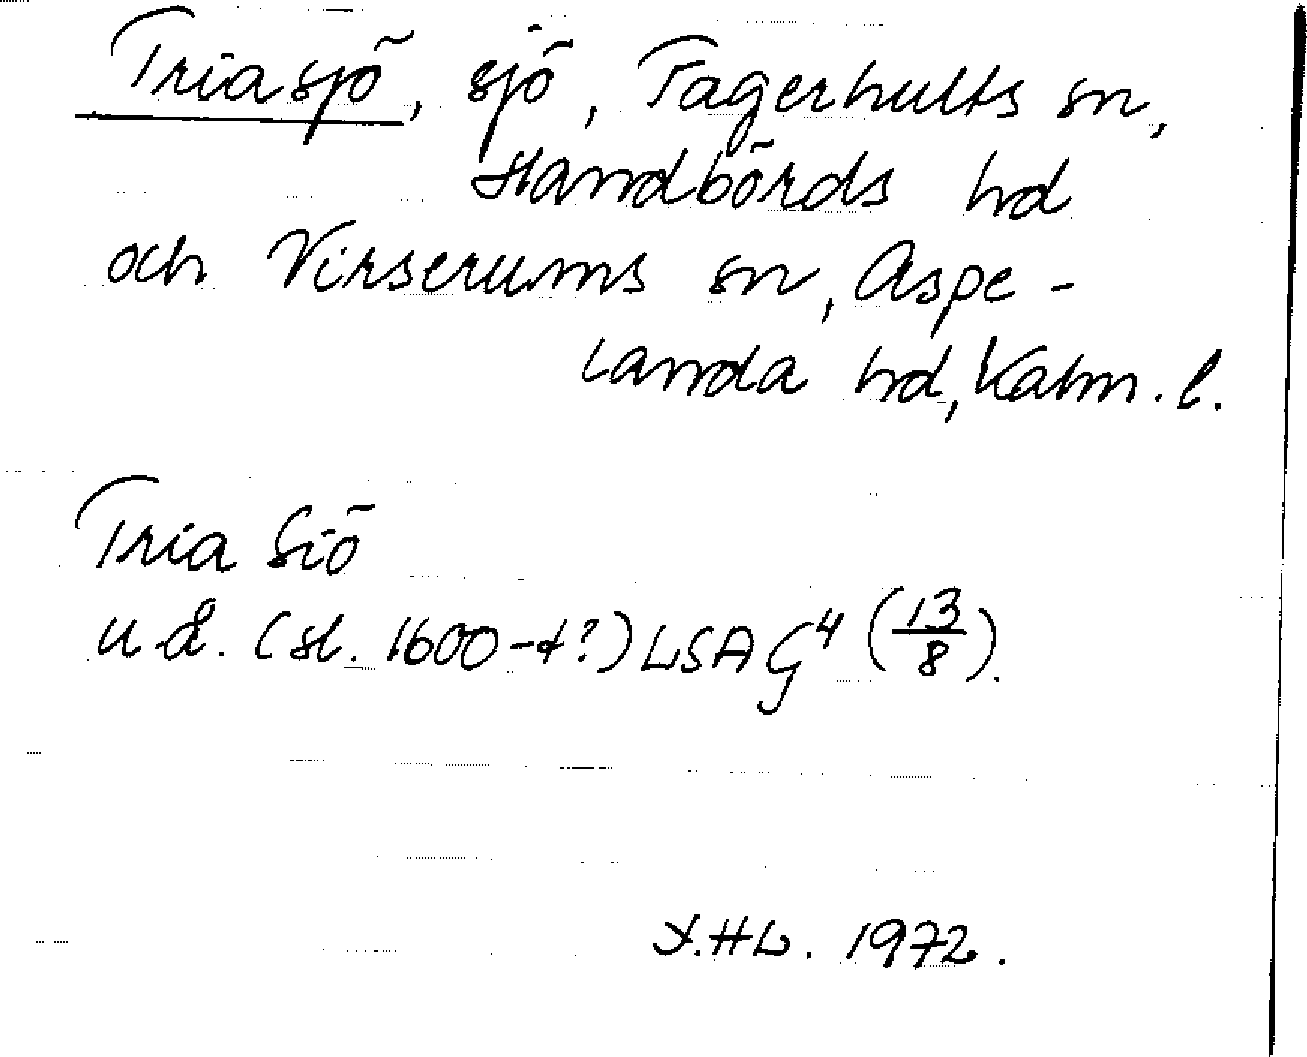 Triasjö, sjö, Fagerhults sn,
Handbörds hd
och Virserums sn, Aspe-
landa hd, Kalm. l.
Tria Siö
u.å. (sl. 1600-t?) LSA G⁴ (13/8).
HL. 1972.